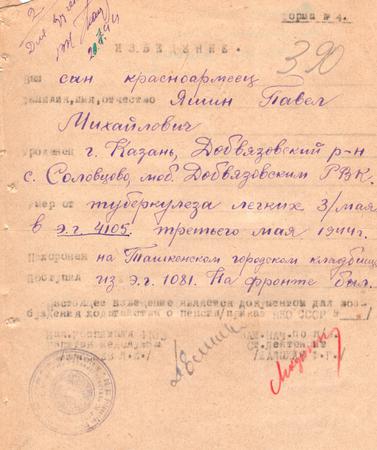 2
Для
20/X 44
Форма № 4.
390
ИЗВЕЩЕНИЕ.
Ваш сын красноармеец
Фамилия, имя, отчество Яшин Павел
Михайлович
уроженец г. Казань, Добвязовский р-н
с. Соловцово, моб. Добвязовским РВК.
умер от туберкулеза легких 3/мая
в э.г 4105. третьего мая 1944г.
Похоронен на Ташкенском городском кладбище
Поступил из э.г. 1081. На фронте был.
Настоящее извещение является документом для воз-
буждения ходатайства о пенсии/приказ НКО СССР №